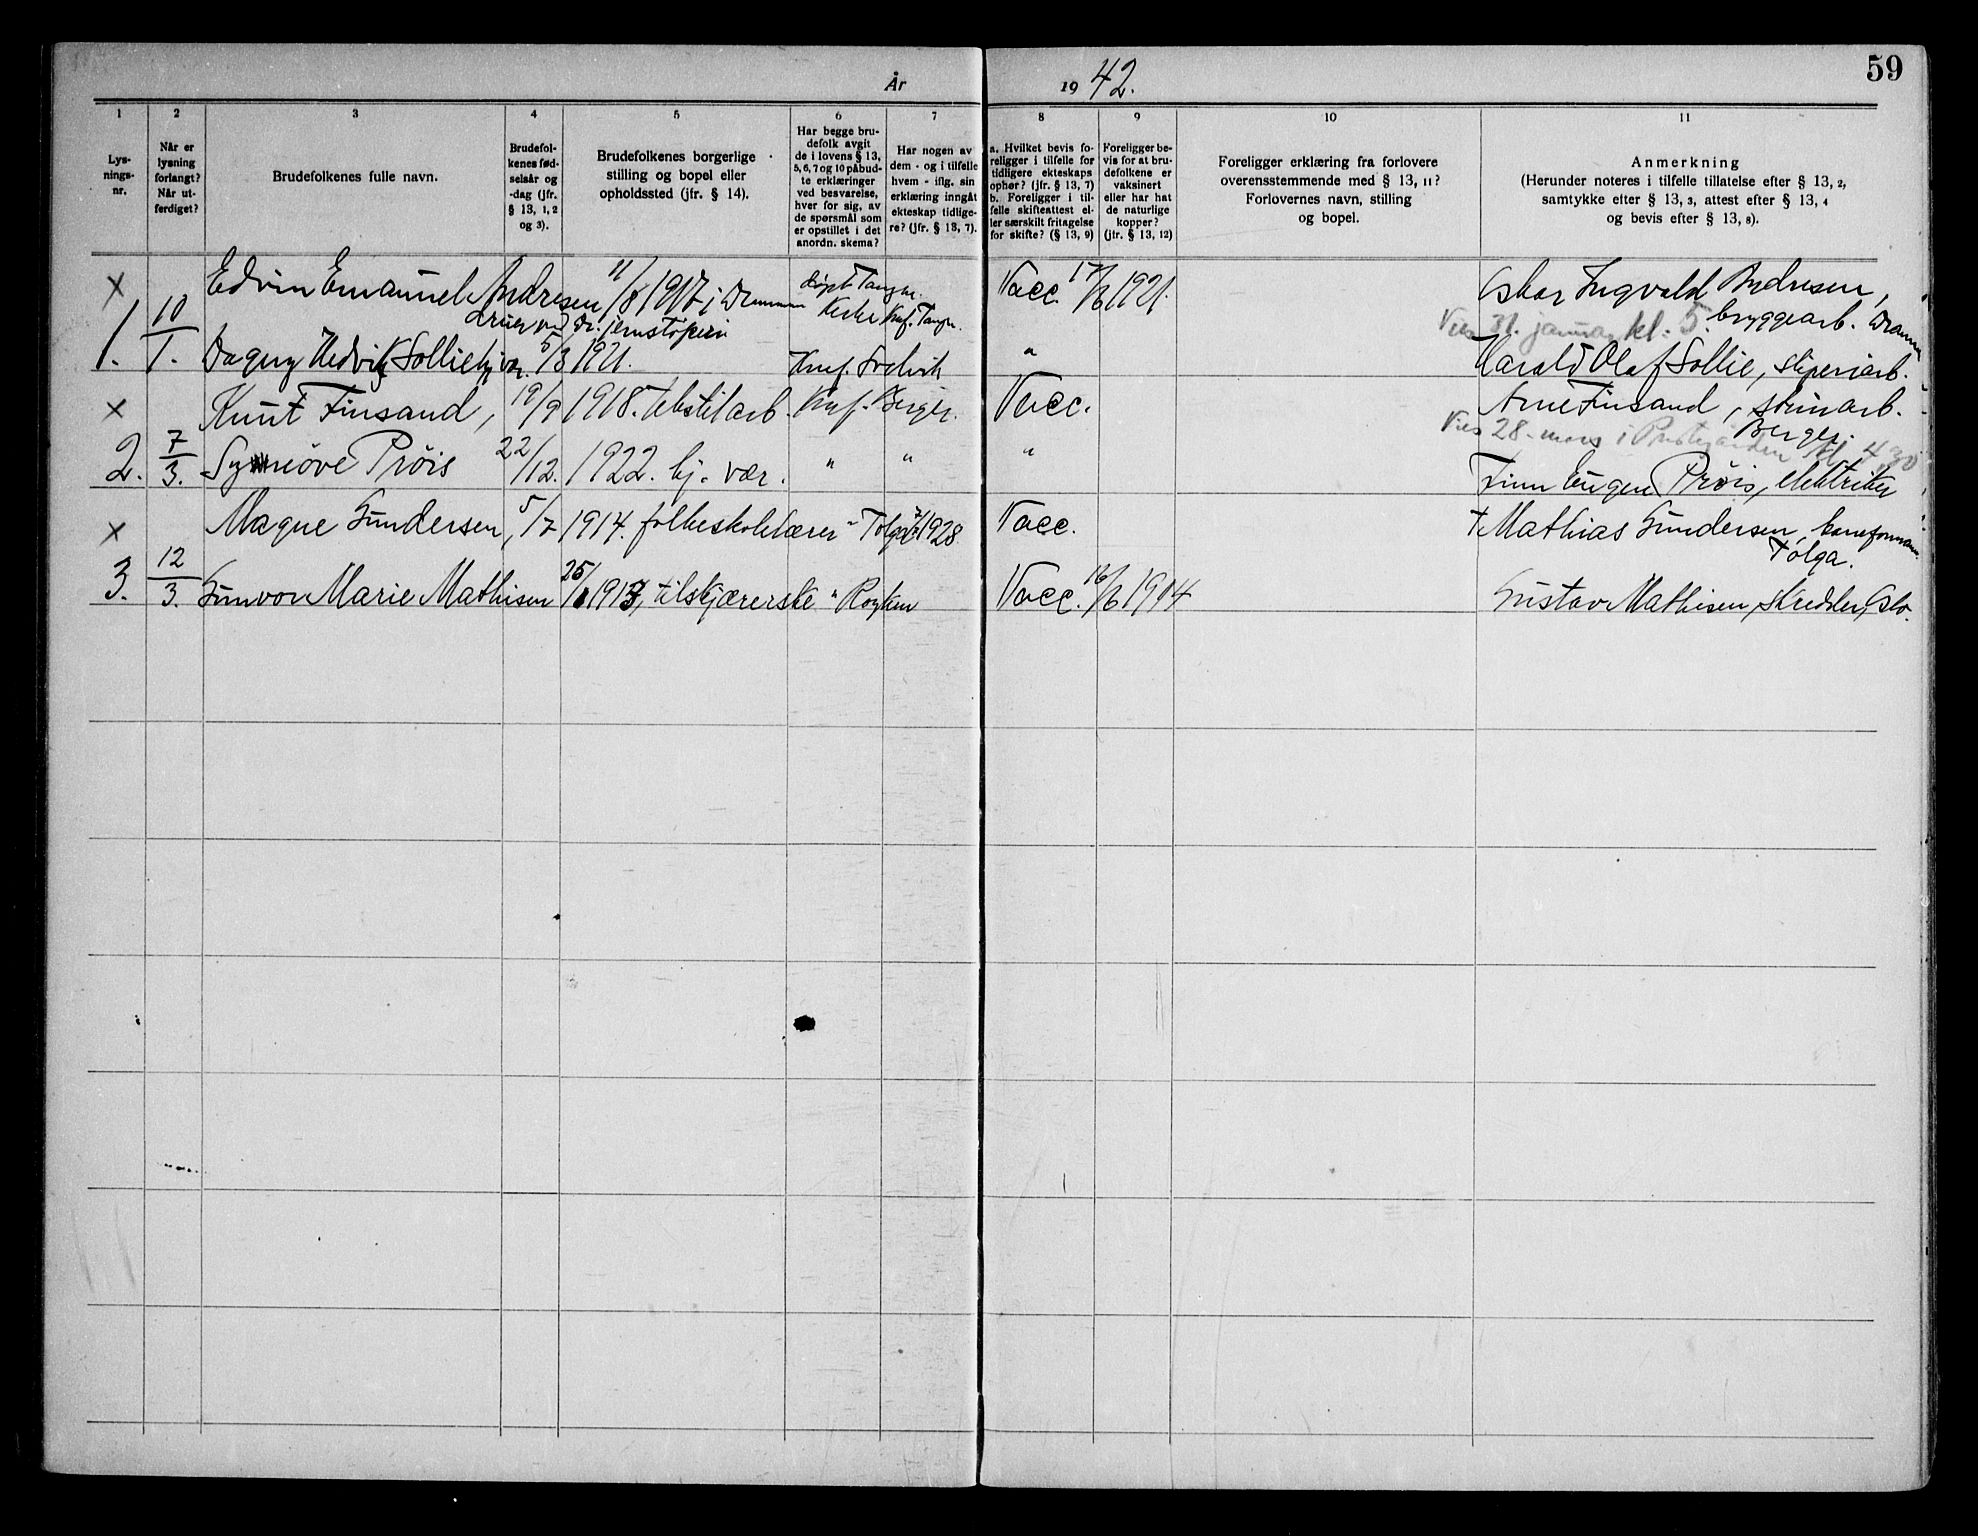 59
År 1942.
1 2 3 4 5 6 7 8 9 10 11
Lys-
nings-
nr.
Når er
lysning
forlangt?
Når ut-
ferdiget?
Brudefolkenes fulle navn.
Brudefol-
kenes fød-
selsår og
-dag (jfr.
§ 13, 1, 2
og 3).
Brudefolkenes borgerlige
stilling og bopel eller
opholdssted (jfr. § 14).
Har begge bru-
defolk avgit
de i lovens § 13,
5, 6, 7 og 10 påbud-
te erklæringer
ved besvarelse,
hver for sig, av
de spørsmål som
er opstillet i det
anordn. skema?
Har nogen av
dem - og i tilfelle
hvem - iflg. sin
erklæring inngåt
ekteskap tidlige-
re? (jfr. § 13, 7).
a. Hvilket bevis fo-
religger i tilfelle for
tidligere ekteskaps
ophør? (jfr. § 13, 7)
b. Foreligger i til-
felle skifteattest el-
ler særskilt fritagelse
for skifte? (§ 13, 9)
Foreligger be-
vis for at bru-
defolkene er
vaksinert
eller har hat
de naturlige
kopper?
(jfr. § 13, 12)
Foreligger erklæring fra forlovere
overensstemmende med § 13, 11?
Forlovernes navn, stilling
og bopel.
Anmerkning
(Herunder noteres i tilfelle tillatelse efter § 13, 2,
samtykke efter § 13, 3, attest efter § 13, 4
og bevis efter § 13, 8).
x Edvin Emanuel Andresen 11/8 1917 i Drammen døpt Tangen Vacc. 1921. Oskar Ingvald Andresen,
Kirke Knf. Tangen. bryggearb. Drammen
Vies 31. januar kl. 5.
1. 10/1. Dagny Hedvik Sollie hj. vær. 5/3 1921. Knf. " Harald Olaf Sollie, sliperiarb.
x Knut Finsand, 19/9 1918. tekstilarb. Knf. Berger. Vacc. Arne Finsand, steinarb.
Berger.
Vies 28. mars i Prestegården kl. 4,30
2. 7/3. Synnøve Prøis 22/12. 1922. hj. vær. " " " Finn Eugen Prøis, elektriker
x Magne Gundersen, 5/7 1914. folkeskolelærer " Tolga 1928 Vacc. + Mathias Gundersen,
Tolga.
3. 12/3. Gunvor Marie Mathisen 25/ 1913, tilskjærerske " Røyken Vacc. 16/6 1914 Gustav Mathisen, skredder, Oslo.